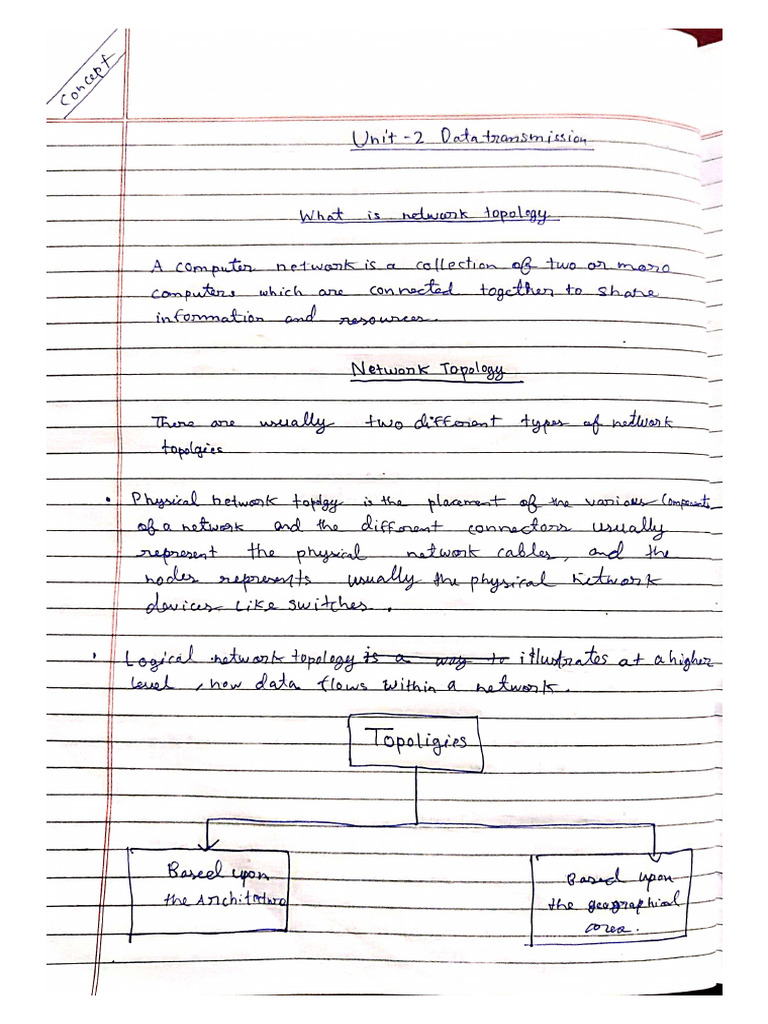 Concept
Unit-2 Data transmission
What is network topology
A computer network is a collection of two or more
computers which are connected together to share
information and resources.
Network Topology
There are usually two different types of network
topolgies
• Physical network topolgy is the placement of the various Components
of a network and the different connectors usually
represent the physical network cables, and the
nodes represents usually the physical network
devices like switches.
• Logical network topology is a way to illustrates at a higher
level, how data flows within a network.
Topoligies
Based upon
the Architecture
Based upon
the geographical
area.